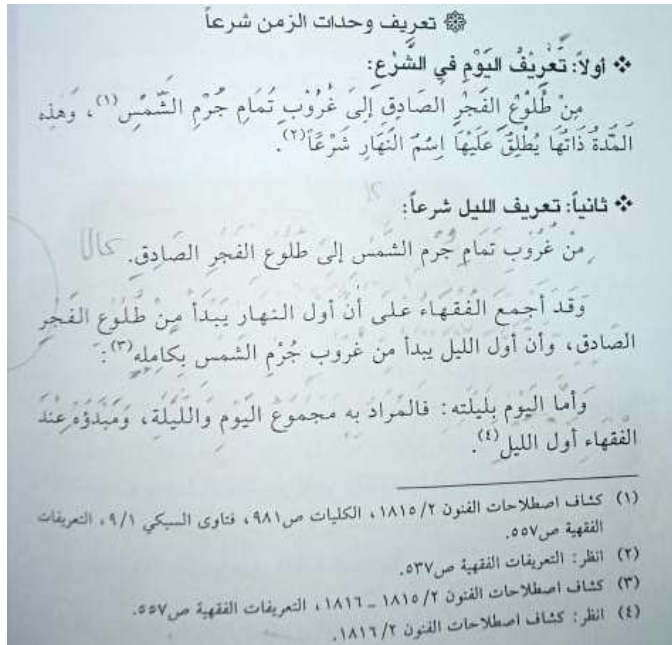 تعريف وحدات الزمن شرعاً
❖ أولاً: تَعْرِيْفُ اليَوْمِ في الشَّرْعِ:
مِنْ طُلُوْعِ الفَجْرِ الصَادِقِ إِلَىْ غُرُوْبِ تَمَامِ جُرْمِ الشَّمْسِ(١)، وَهَذِه
المَدَّةُ ذَاتُهَا يُطْلَقُ عَلَيْهَا اِسْمُ النَهَارِ شَرْعَاً(٢).
❖ ثانياً: تعريف الليل شرعاً:
مِنْ غُرُوْبِ تَمَامِ جُرْم الشمْسِ إلَىْ طُلُوْعِ الفَجْرِ الصَادِقِ.
وَقَدْ أجمَعَ الفُقَهَاءُ عَلَى أَنَّ أول النهَار يَبْدَأ مِنْ طُلُوْع الفَجْرِ
الصَادِقِ، وَأنَّ أوَّلَ الليْل يبدأ مِن غُروب جُرْمِ الشمْس بِكَامِلِهِ(٣):
وَأمَّا اليَوْمُ بِلَيْلَتِه: فالمُرَادُ بِه مَجْمُوعُ اليَوْمِ وَالليْلَة، وَمَبْدَؤهُ عِنْدَ
الفُقَهَاء أَوَّلُ الليْلِ(٤).
(١) كشاف اصطلاحات الفنون ١٨١٥/٢، الكليات ص٩٨١، فتاوى السبكي ٩/١، التعريفات
الفقهية ص٥٥٧.
(٢) انظر: التعريفات الفقهية ص٥٣٧.
(٣) كشاف اصطلاحات الفنون ١٨١٥/٢ ـ ١٨١٦، التعريفات الفقهية ص٥٥٧.
(٤) انظر: كشاف اصطلاحات الفنون ١٨١٦/٢.